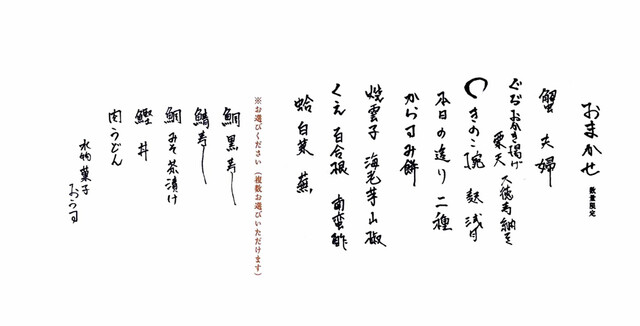 おまかせ 数量限定
蟹 夫婦
ぐぢおかき揚げ
栗天 大徳寺納豆
きのこ椀
本日の造り 二種
からすみ餅
焼雲子 海老芋 山椒
くえ 百合根 南蛮酢
蛤 白菜 蕪
※お選びください(複数お選びいただけます)
鯛黒寿し
鱗寿し
鯛みそ茶漬け
鰹丼
肉うどん
水物 菓子
おうす